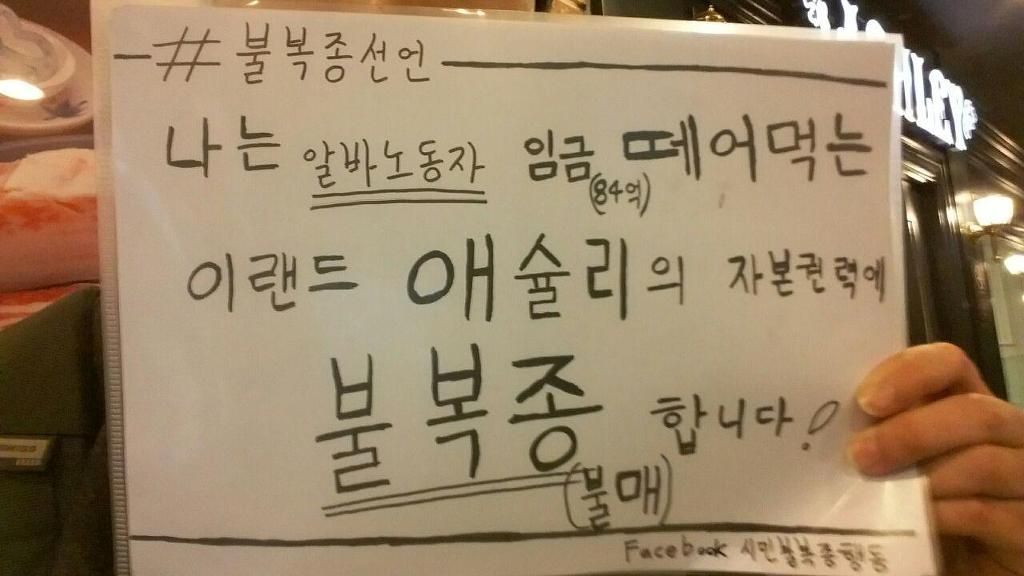 # 불복종선언
나는 알바노동자 임금 떼어먹는
(84억)
이랜드 애슐리의 자본권력에
불복종 합니다!
(불매)
Facebook 시민불복종행동